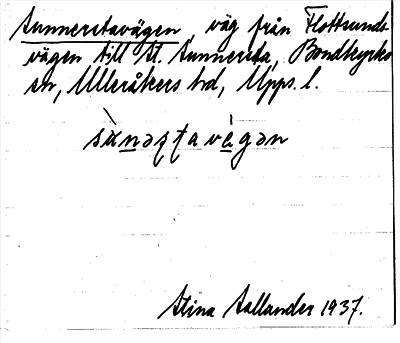 Sunnerstavägen, väg från Flottsunds-
vägen till St. Sunnersta, Bondkyrko
sn, Ulleråkers hd, Upps. l.
sùnəʂʈavä̀gən
Stina Sallander 1937.